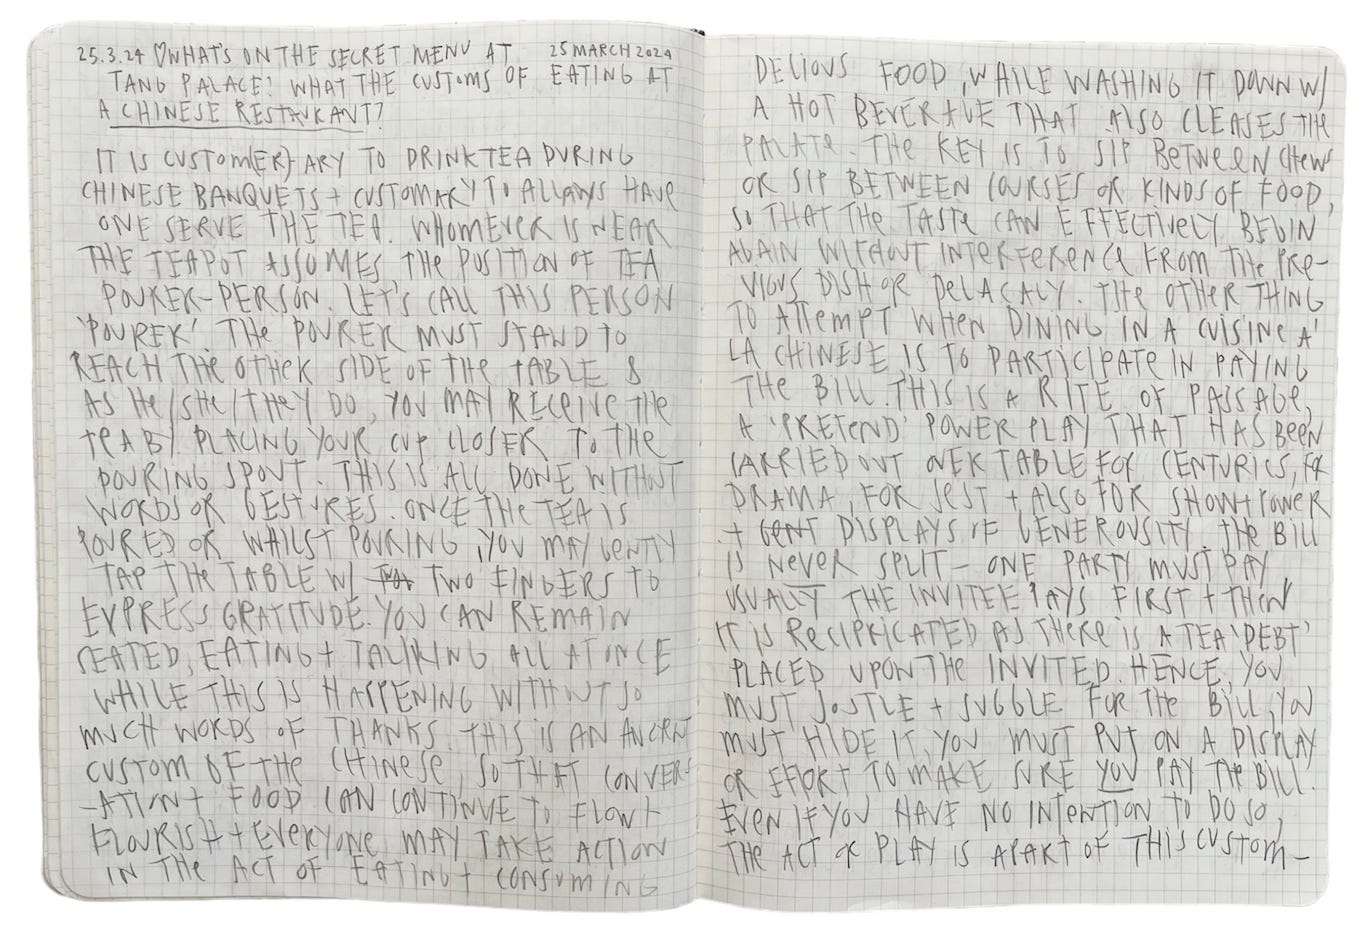 25.3.24 ♡WHAT'S ON THE SECRET MENU AT 25 MARCH 2024
TANG PALACE? WHAT THE CUSTOMS OF EATING AT
A CHINESE RESTAURANT?
IT IS CUSTOM(ER)-ARY TO DRINK TEA DURING
CHINESE BANQUETS + CUSTOMARY TO ALWAYS HAVE
ONE SERVE THE TEA. WHOMEVER IS NEAR
THE TEAPOT ASSUMES THE POSITION OF TEA
POURER-PERSON. LET'S CALL THIS PERSON
'POURER'. THE POURER MUST STAND TO
REACH THE OTHER SIDE OF THE TABLE &
AS HE/SHE/THEY DO, YOU MAY RECEIVE THE
TEA BY PLACING YOUR CUP CLOSER TO THE
POURING SPOUT. THIS IS ALL DONE WITHOUT
WORDS OR GESTURES. ONCE THE TEA IS
POURED OR WHILST POURING, YOU MAY GENTLY
TAP THE TABLE W/ TWO FINGERS TO
EXPRESS GRATITUDE. YOU CAN REMAIN
SEATED, EATING + TALKING ALL AT ONCE
WHILE THIS IS HAPPENING WITHOUT SO
MUCH WORDS OF THANKS. THIS IS AN ANCIENT
CUSTOM OF THE CHINESE, SO THAT CONVERS
-ATION + FOOD CAN CONTINUE TO FLOW +
FLOURISH + EVERYONE MAY TAKE ACTION
IN THE ACT OF EATING + CONSUMING
DELIOUS FOOD, WHILE WASHING IT DOWN W/
A HOT BEVERAGE THAT ALSO CLEASES THE
PALATE. THE KEY IS TO SIP BETWEEN CHEWS
OR SIP BETWEEN COURSES OR KINDS OF FOOD,
SO THAT THE TASTE CAN EFFECTIVELY BEGIN
AGAIN WITHOUT INTERFERENCE FROM THE PRE-
VIOUS DISH OR DELACACY. THE OTHER THING
TO ATTEMPT WHEN DINING IN A CUISINE A'
LA CHINESE, IS TO PARTICIPATE IN PAYING
THE BILL. THIS IS A RITE OF PASSAGE,
A 'PRETEND' POWER PLAY THAT HAS BEEN
CARRIED OUT OVER TABLE FOR CENTURIES, FOR
DRAMA, FOR JEST + ALSO FOR SHOW + POWER
+ DISPLAYS OF GENEROUSITY. THE BILL
IS NEVER SPLIT - ONE PARTY MUST PAY,
USUALLY THE INVITEE PAYS FIRST + THEN
IT IS RECIPRICATED AS THERE IS A TEA 'DEBT'
PLACED UPON THE INVITED. HENCE, YOU
MUST JOSTLE + JUGGLE FOR THE BILL, YOU
MUST HIDE IT, YOU MUST PUT ON A DISPLAY
OR EFFORT TO MAKE SURE YOU PAY THE BILL.
EVEN IF YOU HAVE NO INTENTION TO DO SO,
THE ACT OR PLAY IS APART OF THIS CUSTOM-